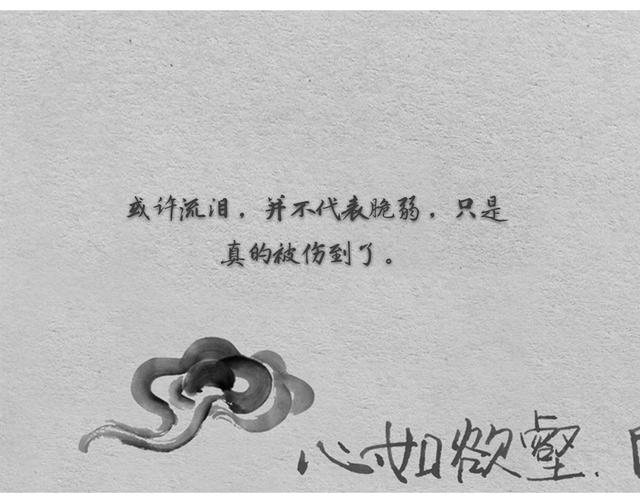 或许流泪，并不代表脆弱，只是
真的被伤到了。
心如欲壑.